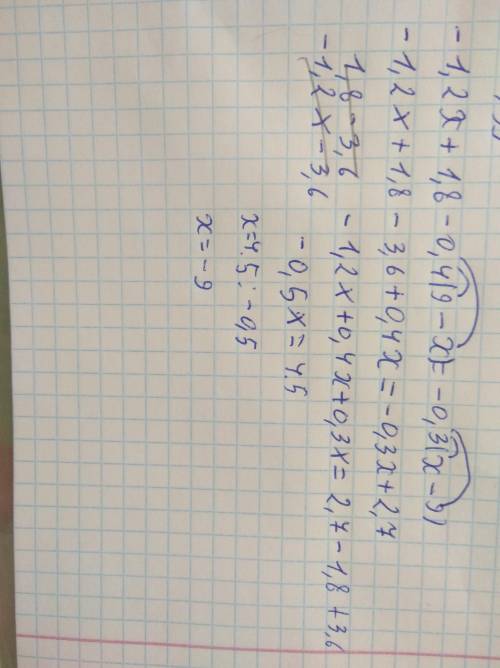 -1,2x + 1,8 - 0,4(9 - x) = -0,3(x - 9)
-1,2x + 1,8 - 3,6 + 0,4x = -0,3x + 2,7
1,8 - 3,6 - 1,2x + 0,4x + 0,3x = 2,7 - 1,8 + 3,6
-1,2x - 3,6 -0,5x = 4.5
x = 4.5 : -0,5
x = -9